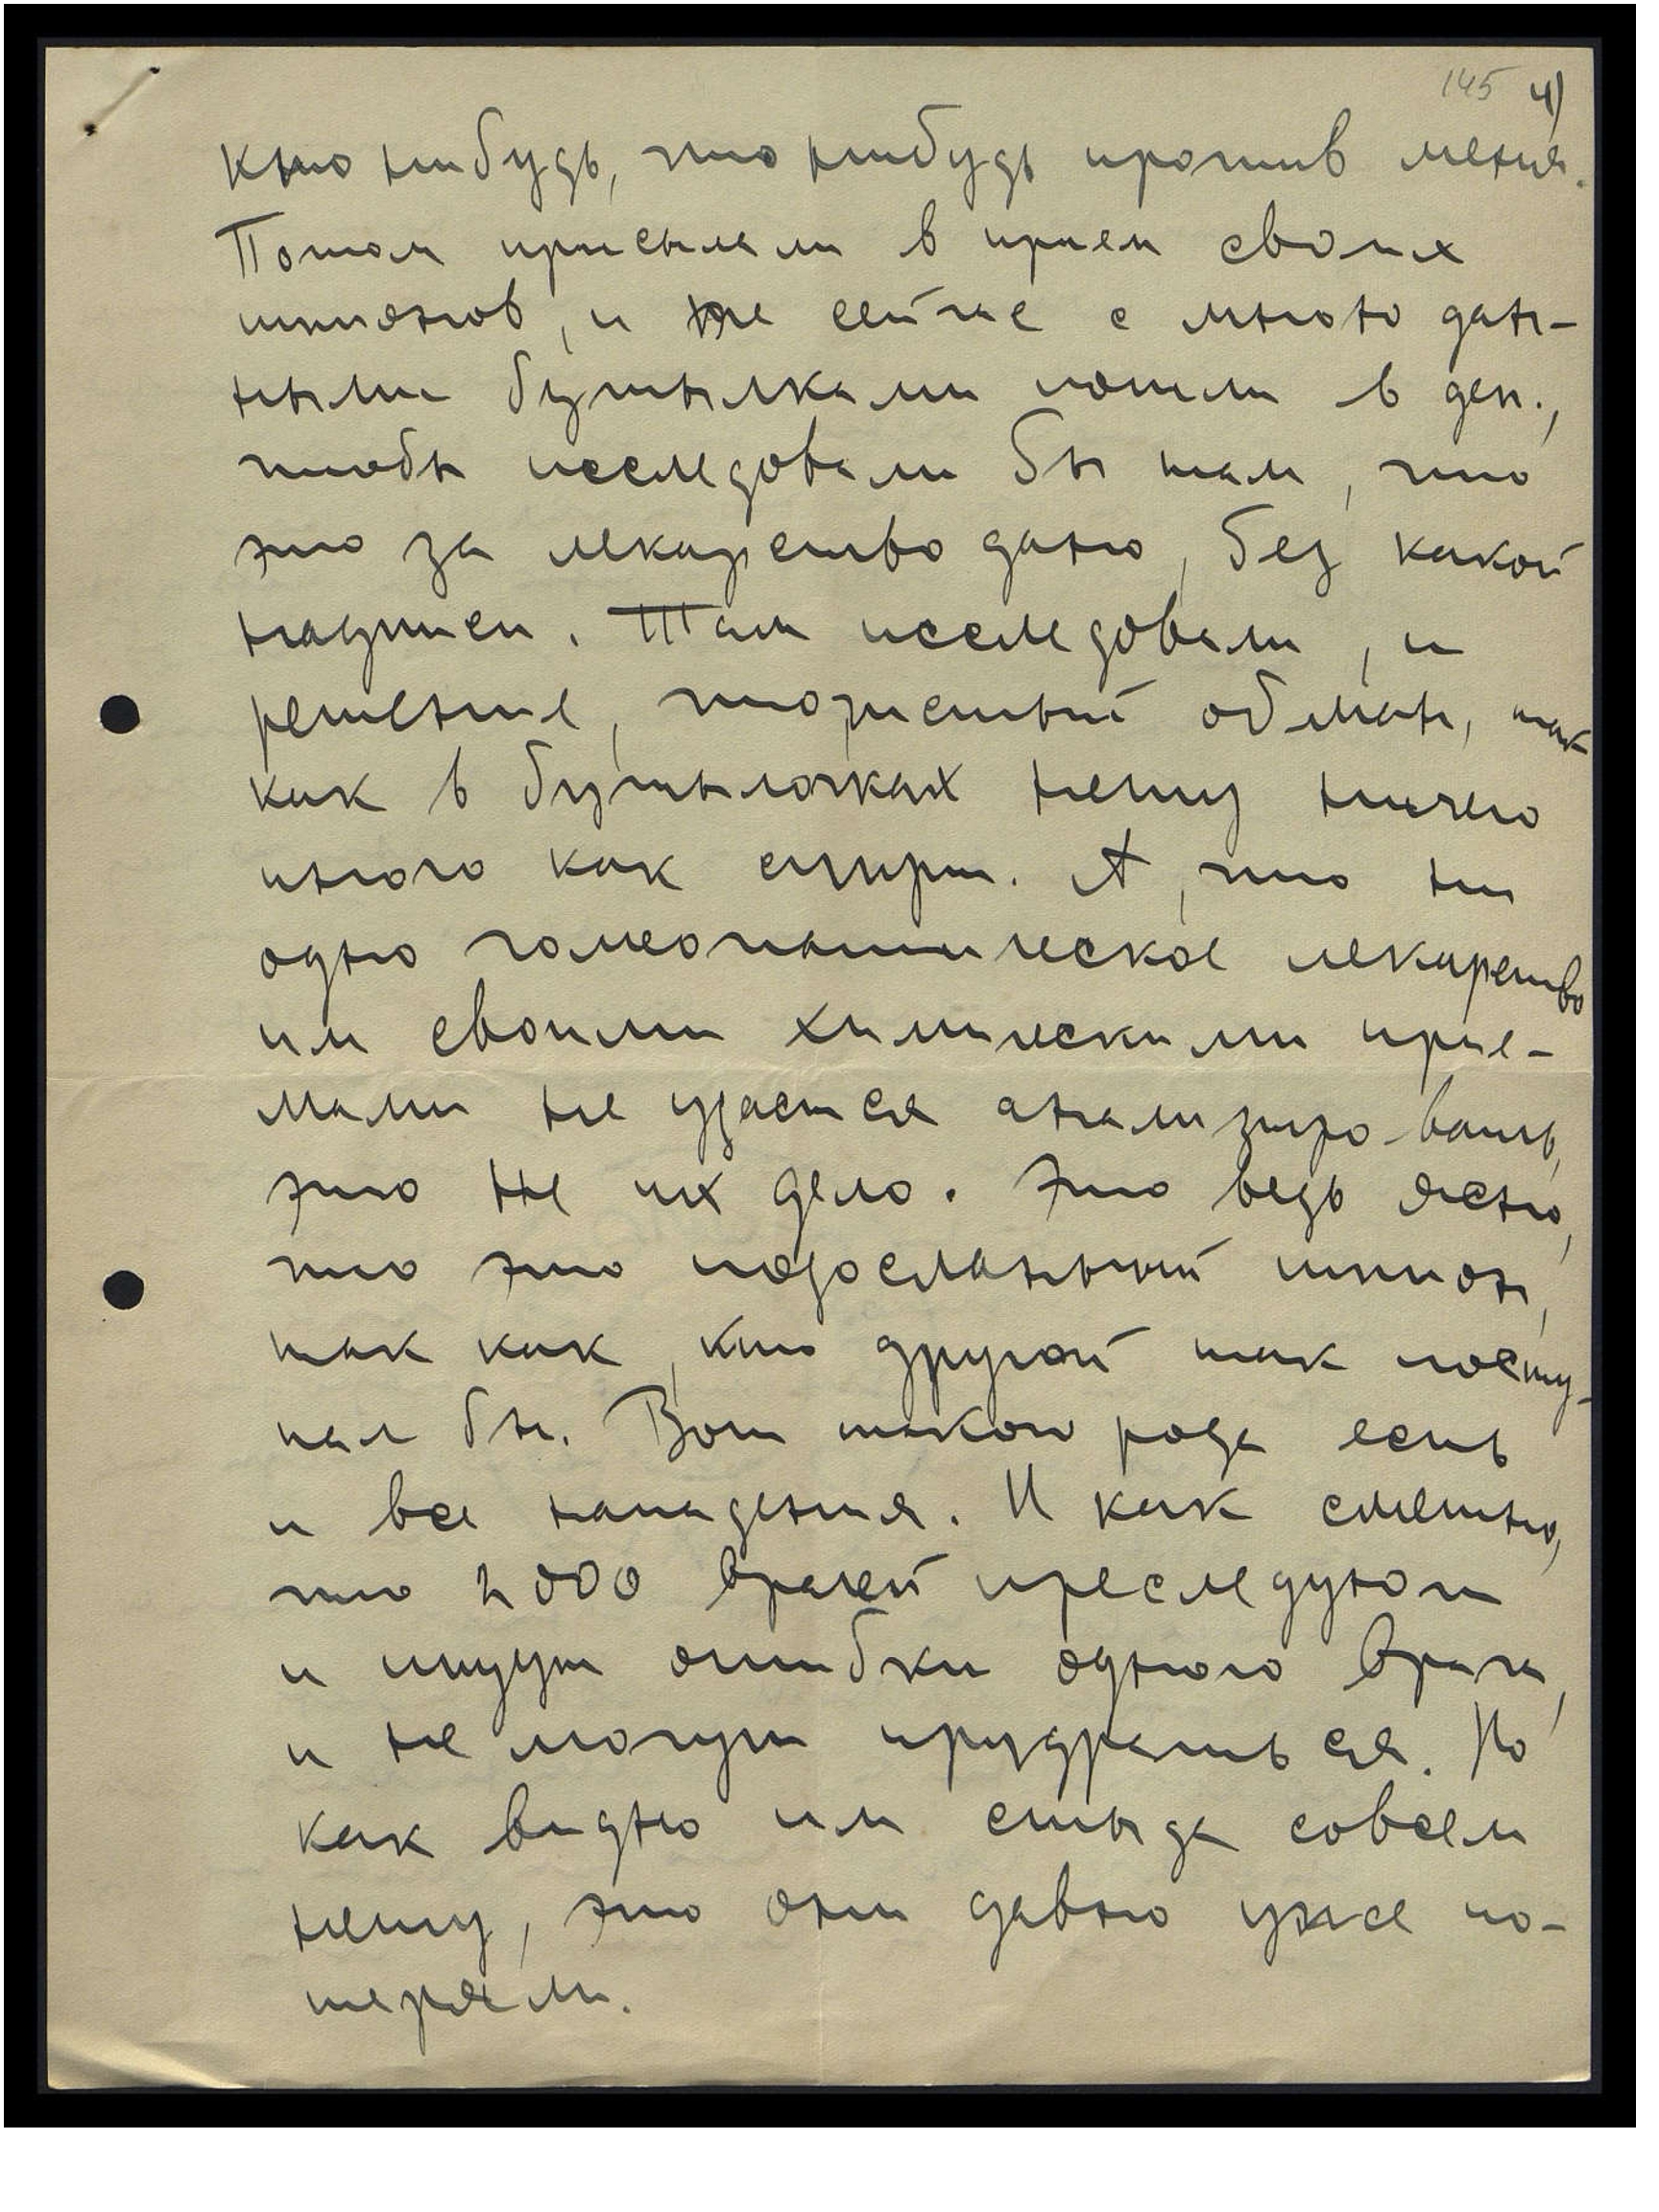 145 4)
кто нибудь, что нибудь против меня.
Потом присылали в прием своих
шпионов, и те сейчас с мною дан-
ными бутылками пошли в деп.,
чтобы исследовали бы там, что
это за лекарство дано, без какой
надписи. Там исследовали, и
решение, что жестый обман, так
как в бутылочках нету ничего
иного как спирт. А, что ни
одно гомеопатическое лекарство
им своими химическими прие-
мами не удастся анализировать,
это не их дело. Это ведь ясно,
что это подосланный шпион,
так как, кто другой так посту-
пал бы. Вот такого рода есть
и все нападения. И как смешно,
что 2000 врачей преследуют
и ищут ошибки одного врача,
и не могут придраться. Но
как видно им стыда совсем
нету, это они давно уже по-
теряли.